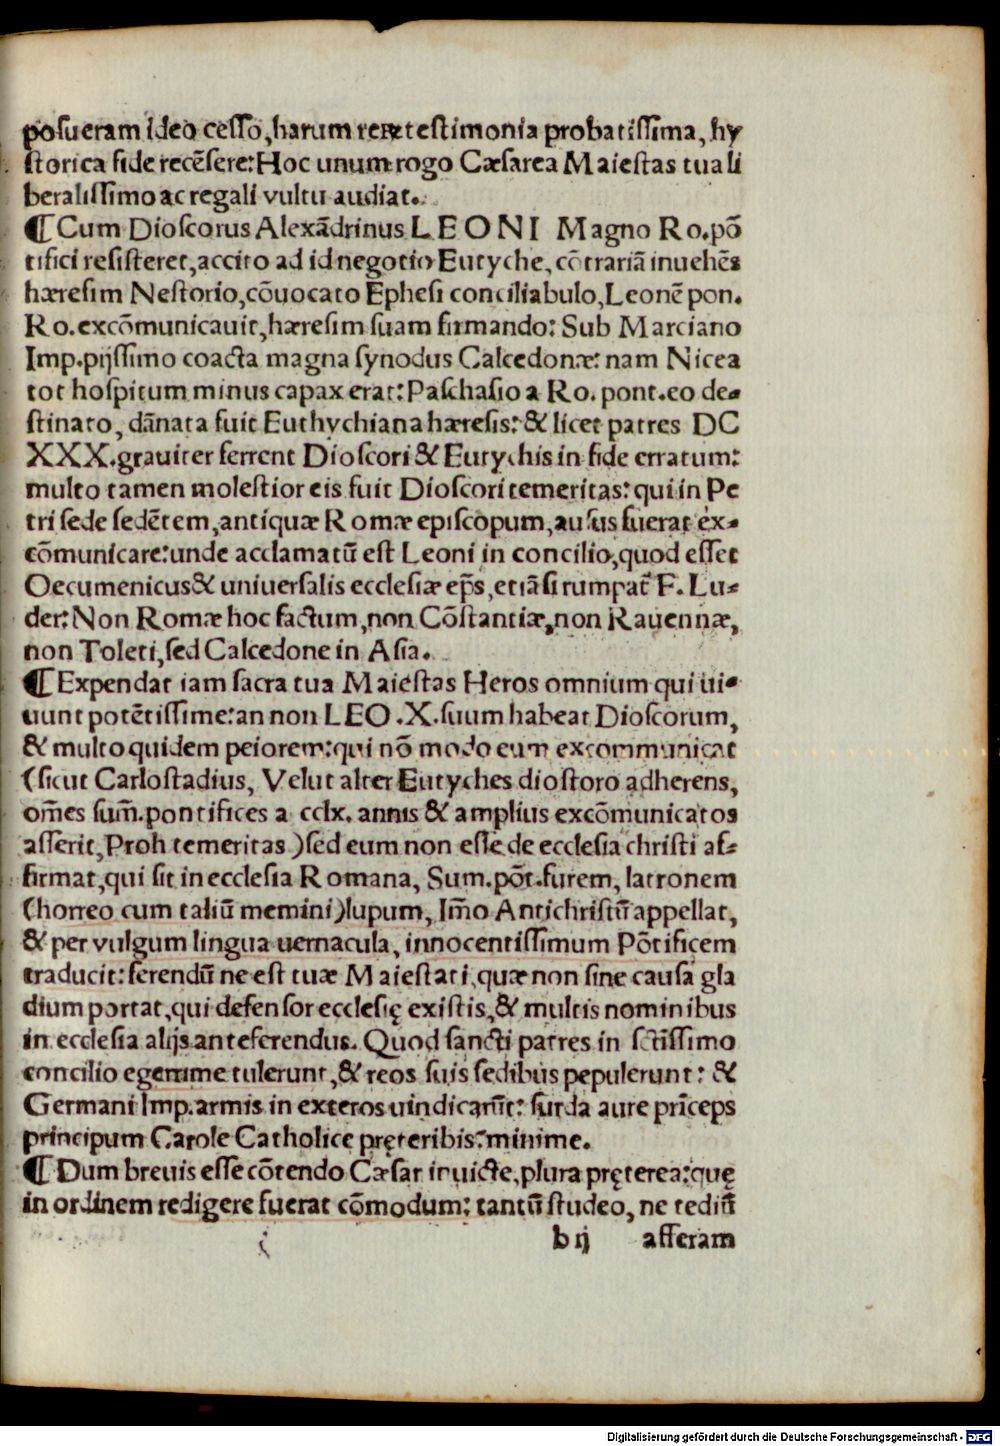 posueram ideo cesso, harum rerū testimonia probatissima, hy
storica fide recēsere: Hoc unum rogo Cæsarea Maiestas tua li
beralissimo ac regali vultu audiat.
¶ Cum Dioscorus Alexādrinus LEONI Magno Ro. pō
tifici resisteret, accito ad id negotio Eutyche, cōtrariā inuehēs
hæresim Nestorio, cōuocato Ephesi conciliabulo, Leonē pon.
Ro. excōmunicauit, hæresim suam firmando: Sub Marciano
Imp. pijssimo coacta magna synodus Calcedonæ: nam Nicea
tot hospitum minus capax erat: Paschasio a Ro. pont. eo de-
stinato, dānata fuit Euthychiana hæresis: & licet patres DC
XXX. grauiter ferrent Dioscori & Eutychis in fide erratum:
multo tamen molestior eis fuit Dioscori temeritas: qui in Pe
tri sede sedētem, antiquæ Romæ episcopum, ausus fuerat ex-
cōmunicare: unde acclamatū est Leoni in concilio, quod esset
Oecumenicus & uniuersalis ecclesiæ ep̄s, etiā si rumpat̃ F. Lu-
der: Non Romæ hoc factum, non Cōstantiæ, non Rauennæ,
non Toleti, sed Calcedone in Asia.
¶ Expendat iam sacra tua Maiestas Heros omnium qui ui-
uunt potētissime: an non LEO .X. suum habeat Dioscorum,
& multo quidem peiorem: qui nō modo eum excommunicat
(sicut Carlostadius, Velut alter Eutyches diostoro adherens,
om̄es sum̄. pontifices a cclx. annis & amplius excōmunicatos
asserit, Proh temeritas) sed eum non esse de ecclesia christi af-
firmat, qui sit in ecclesia Romana, Sum. pōt. furem, latronem
(horreo cum taliū memini) lupum, Im̄o Antichristū appellat,
& per vulgum lingua uernacula, innocentissimum Pōtificem
traducit: ferendū ne est tuæ Maiestati, quæ non sine causa gla
dium portat, qui defensor ecclesię existis, & multis nominibus
in ecclesia alijs anteferendus. Quod sancti patres in sc̄tissimo
concilio egerrime tulerunt, & reos suis sedibus pepulerunt: &
Germani Imp. armis in exteros uindicarūt: surda aure prīceps
principum Carole Catholice pręteribis: minime.
¶ Dum breuis esse cōtendo Cæsar inuicte, plura pręterea: quę
in ordinem redigere fuerat cōmodum: tantū studeo, ne tediū
b ij afferam
Digitalisierung gefördert durch die Deutsche Forschungsgemeinschaft - DFG